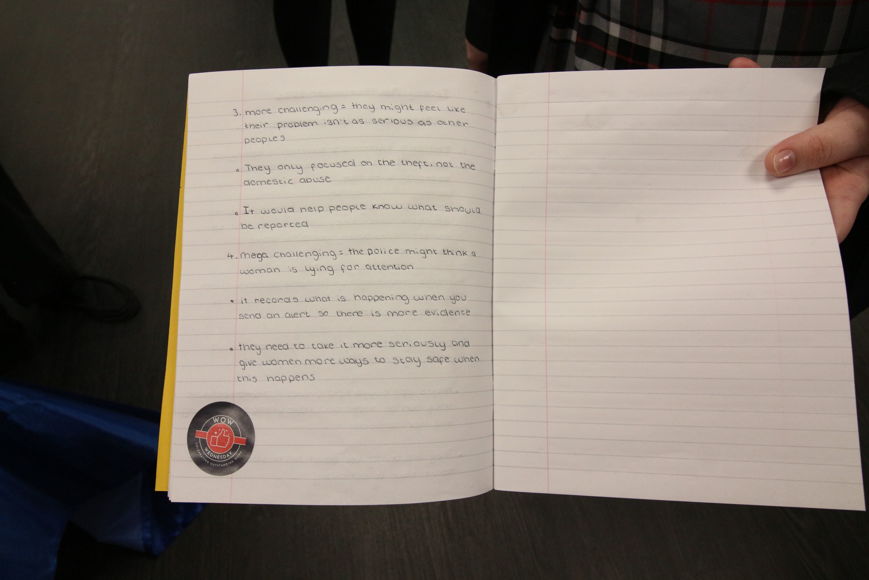 3. more challenging = they might feel like
their problem isn't as serious as other
peoples
• They only focused on the theft, not the
domestic abuse
• It would help people know what should
be reported
4. mega challenging = the police might think a
woman is lying for attention
• it records what is happening when you
send an alert so there is more evidence
• they need to take it more seriously and
give women more ways to stay safe when
this happens
WOW
WEDNESDAY